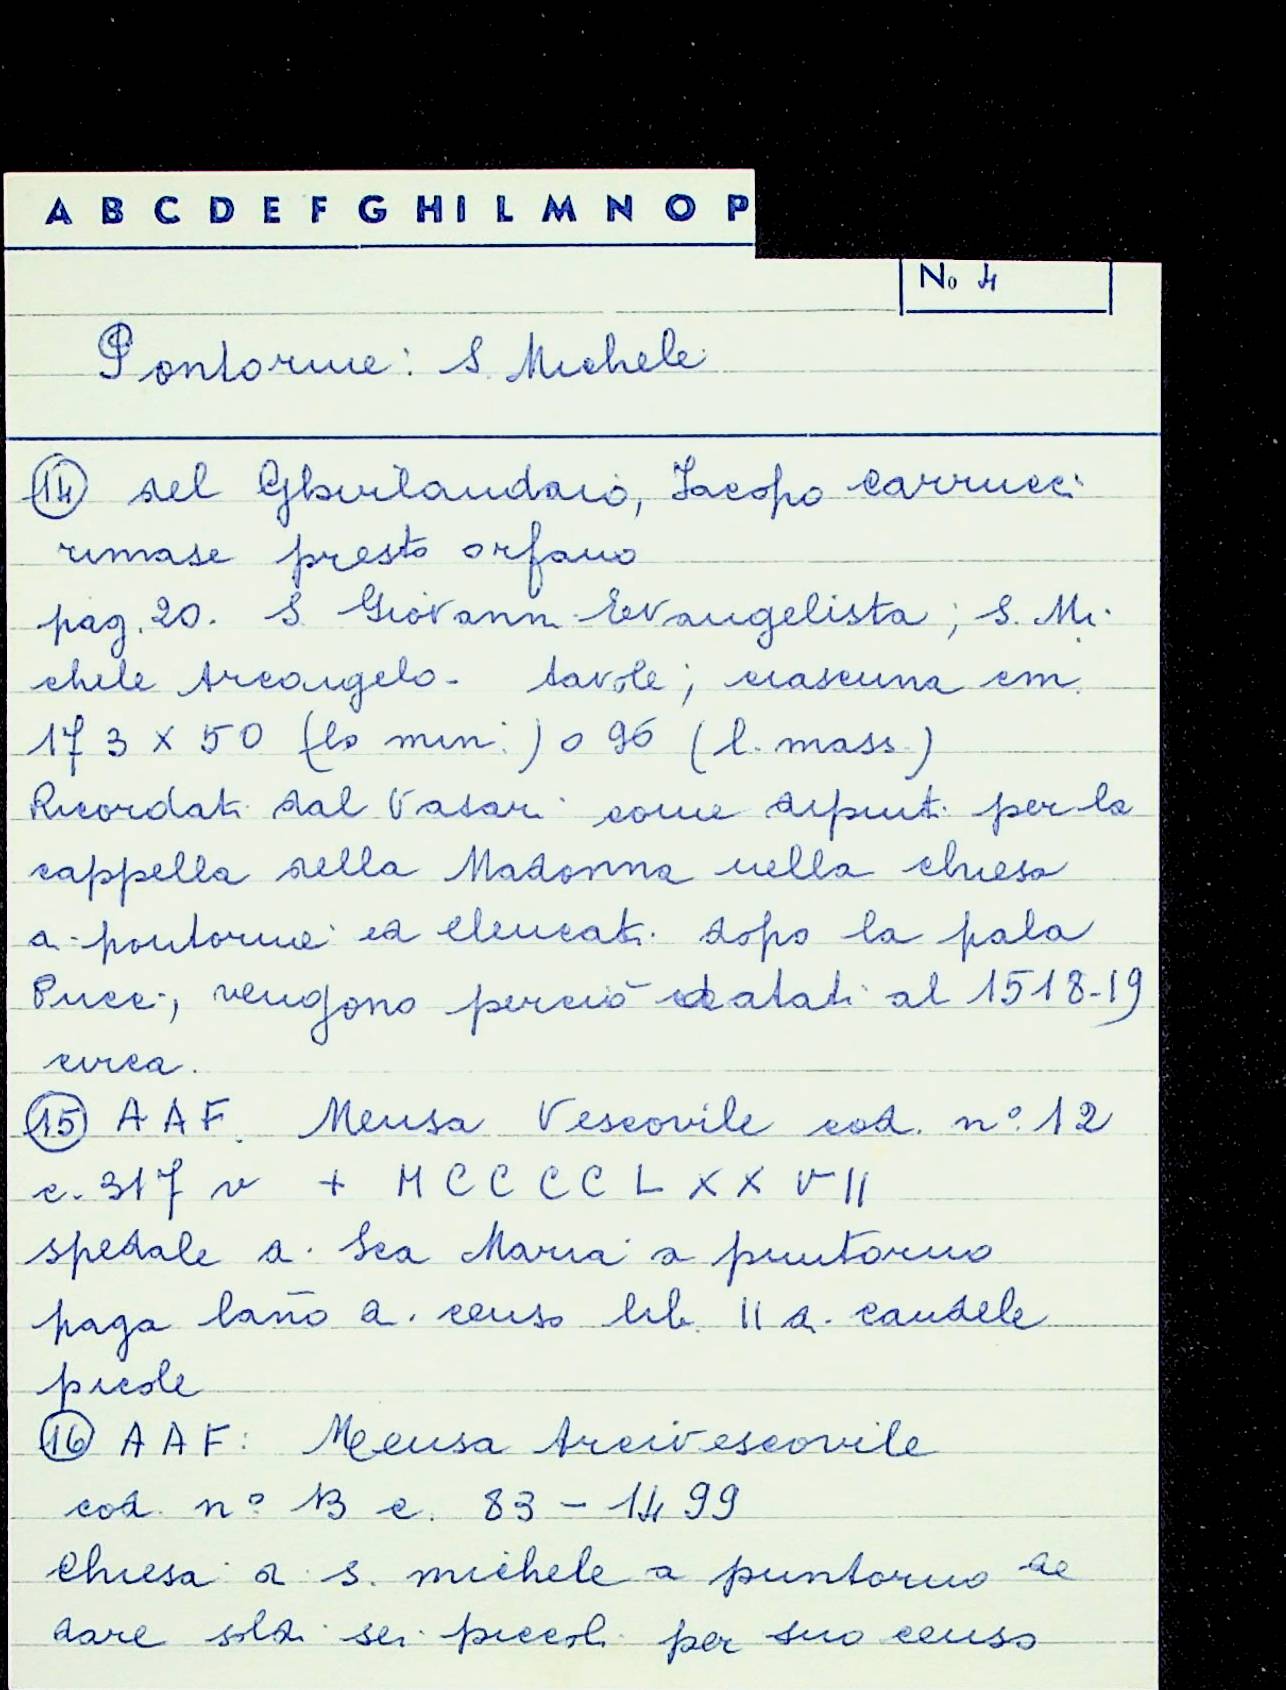 A B C D E F G H I L M N O P
No 4
Pontorme: S. Michele
14 del Ghirlandaio, Jacopo Carrucci
rimase presto orfano
pag. 20. S Giovanni Evangelista; S. Mi
chele Arcangelo - tavole; ciascuna cm.
173 x 50 (lo min.) o 96 (l. mass.)
Ricordati dal Vasari come dipinti per la
cappella della Madonna nella chiesa
a pontorme ed elencati dopo la pala
Pucci, vengono perciò datati al 1518-19
circa.
15 AAF. Mensa Vescovile cod. n° 12
c. 317 v + MCCCCLXXVII
spedale di Sca Maria a puntormo
paga lano di censo lib. II di candele
picole
16 AAF: Mensa Arcivescovile
cod. n° 13 c. 83 - 1499
Chiesa di S. michele a puntormo de
dare soldi sei piccoli per suo censo